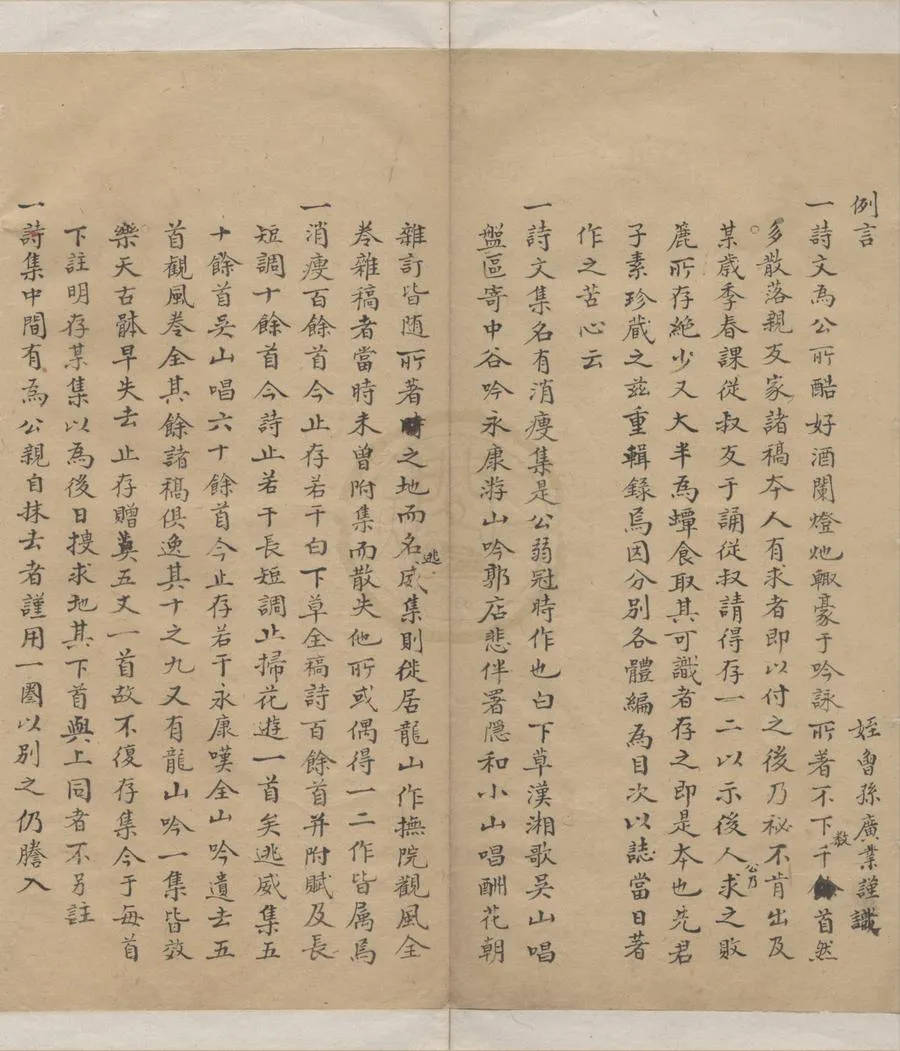 例言
姪曾孫廣業謹識
一詩文為公所酷好酒闌燈灺輙豪于吟詠所著不下千數首然
多散落親友家諸稿夲人有求者即以付之後乃祕不肯出及
某歲季春課從叔友于誦從叔請得存一二以示後人公乃求之敗
簏所存絶少又大半為蟫食取其可識者存之即是夲也先君
子素珍藏之茲重輯錄焉因分別各體編為目次以誌當日著
作之苦心云
一詩文集名有消瘦集是公弱冠時作也白下草漢湘歌吴山唱
盤區寄中谷吟永康游山吟郭店悲伴署隱和小山唱酬花朝
雜訂皆随所著時之地而名逃威集則徙居龍山作撫院觀風全
卷雜稿者當時未曾附集而散失他所或偶得一二作皆属焉
一消瘦百餘首今止存若干白下草全稿詩百餘首并附賦及長
短調十餘首今詩止若干長短調止掃花遊一首矣逃威集五
十餘首吴山唱六十餘首今止存若干永康嘆全山吟遺去五
首觀風卷全其餘諸稿俱逸其十之九又有龍山吟一集皆效
樂天古體早失去止存贈奠五丈一首故不復存集今于每首
下註明存某集以為後日摟求地其下首與上同者不另註
一詩集中間有為公親自抹去者謹用一圏以别之仍謄入